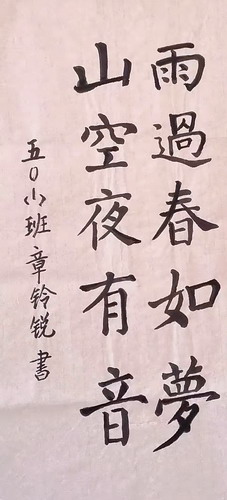 雨過春如夢
山空夜有音
五〇小班章铃锐書